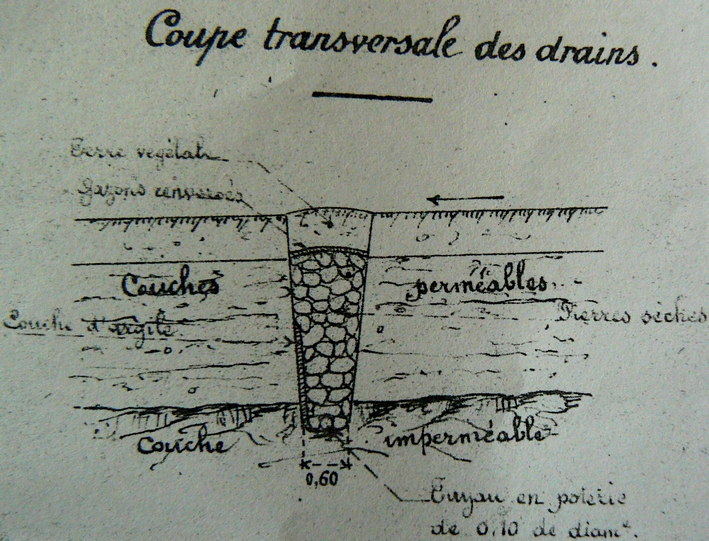 Coupe transversale des drains.
Terre végétale
Gazons renversés
Couches perméables
Couche d'argile
Pierres sèches
Couche imperméable
0,60
Tuyau en poterie
de 0,10 de diamᵉ.